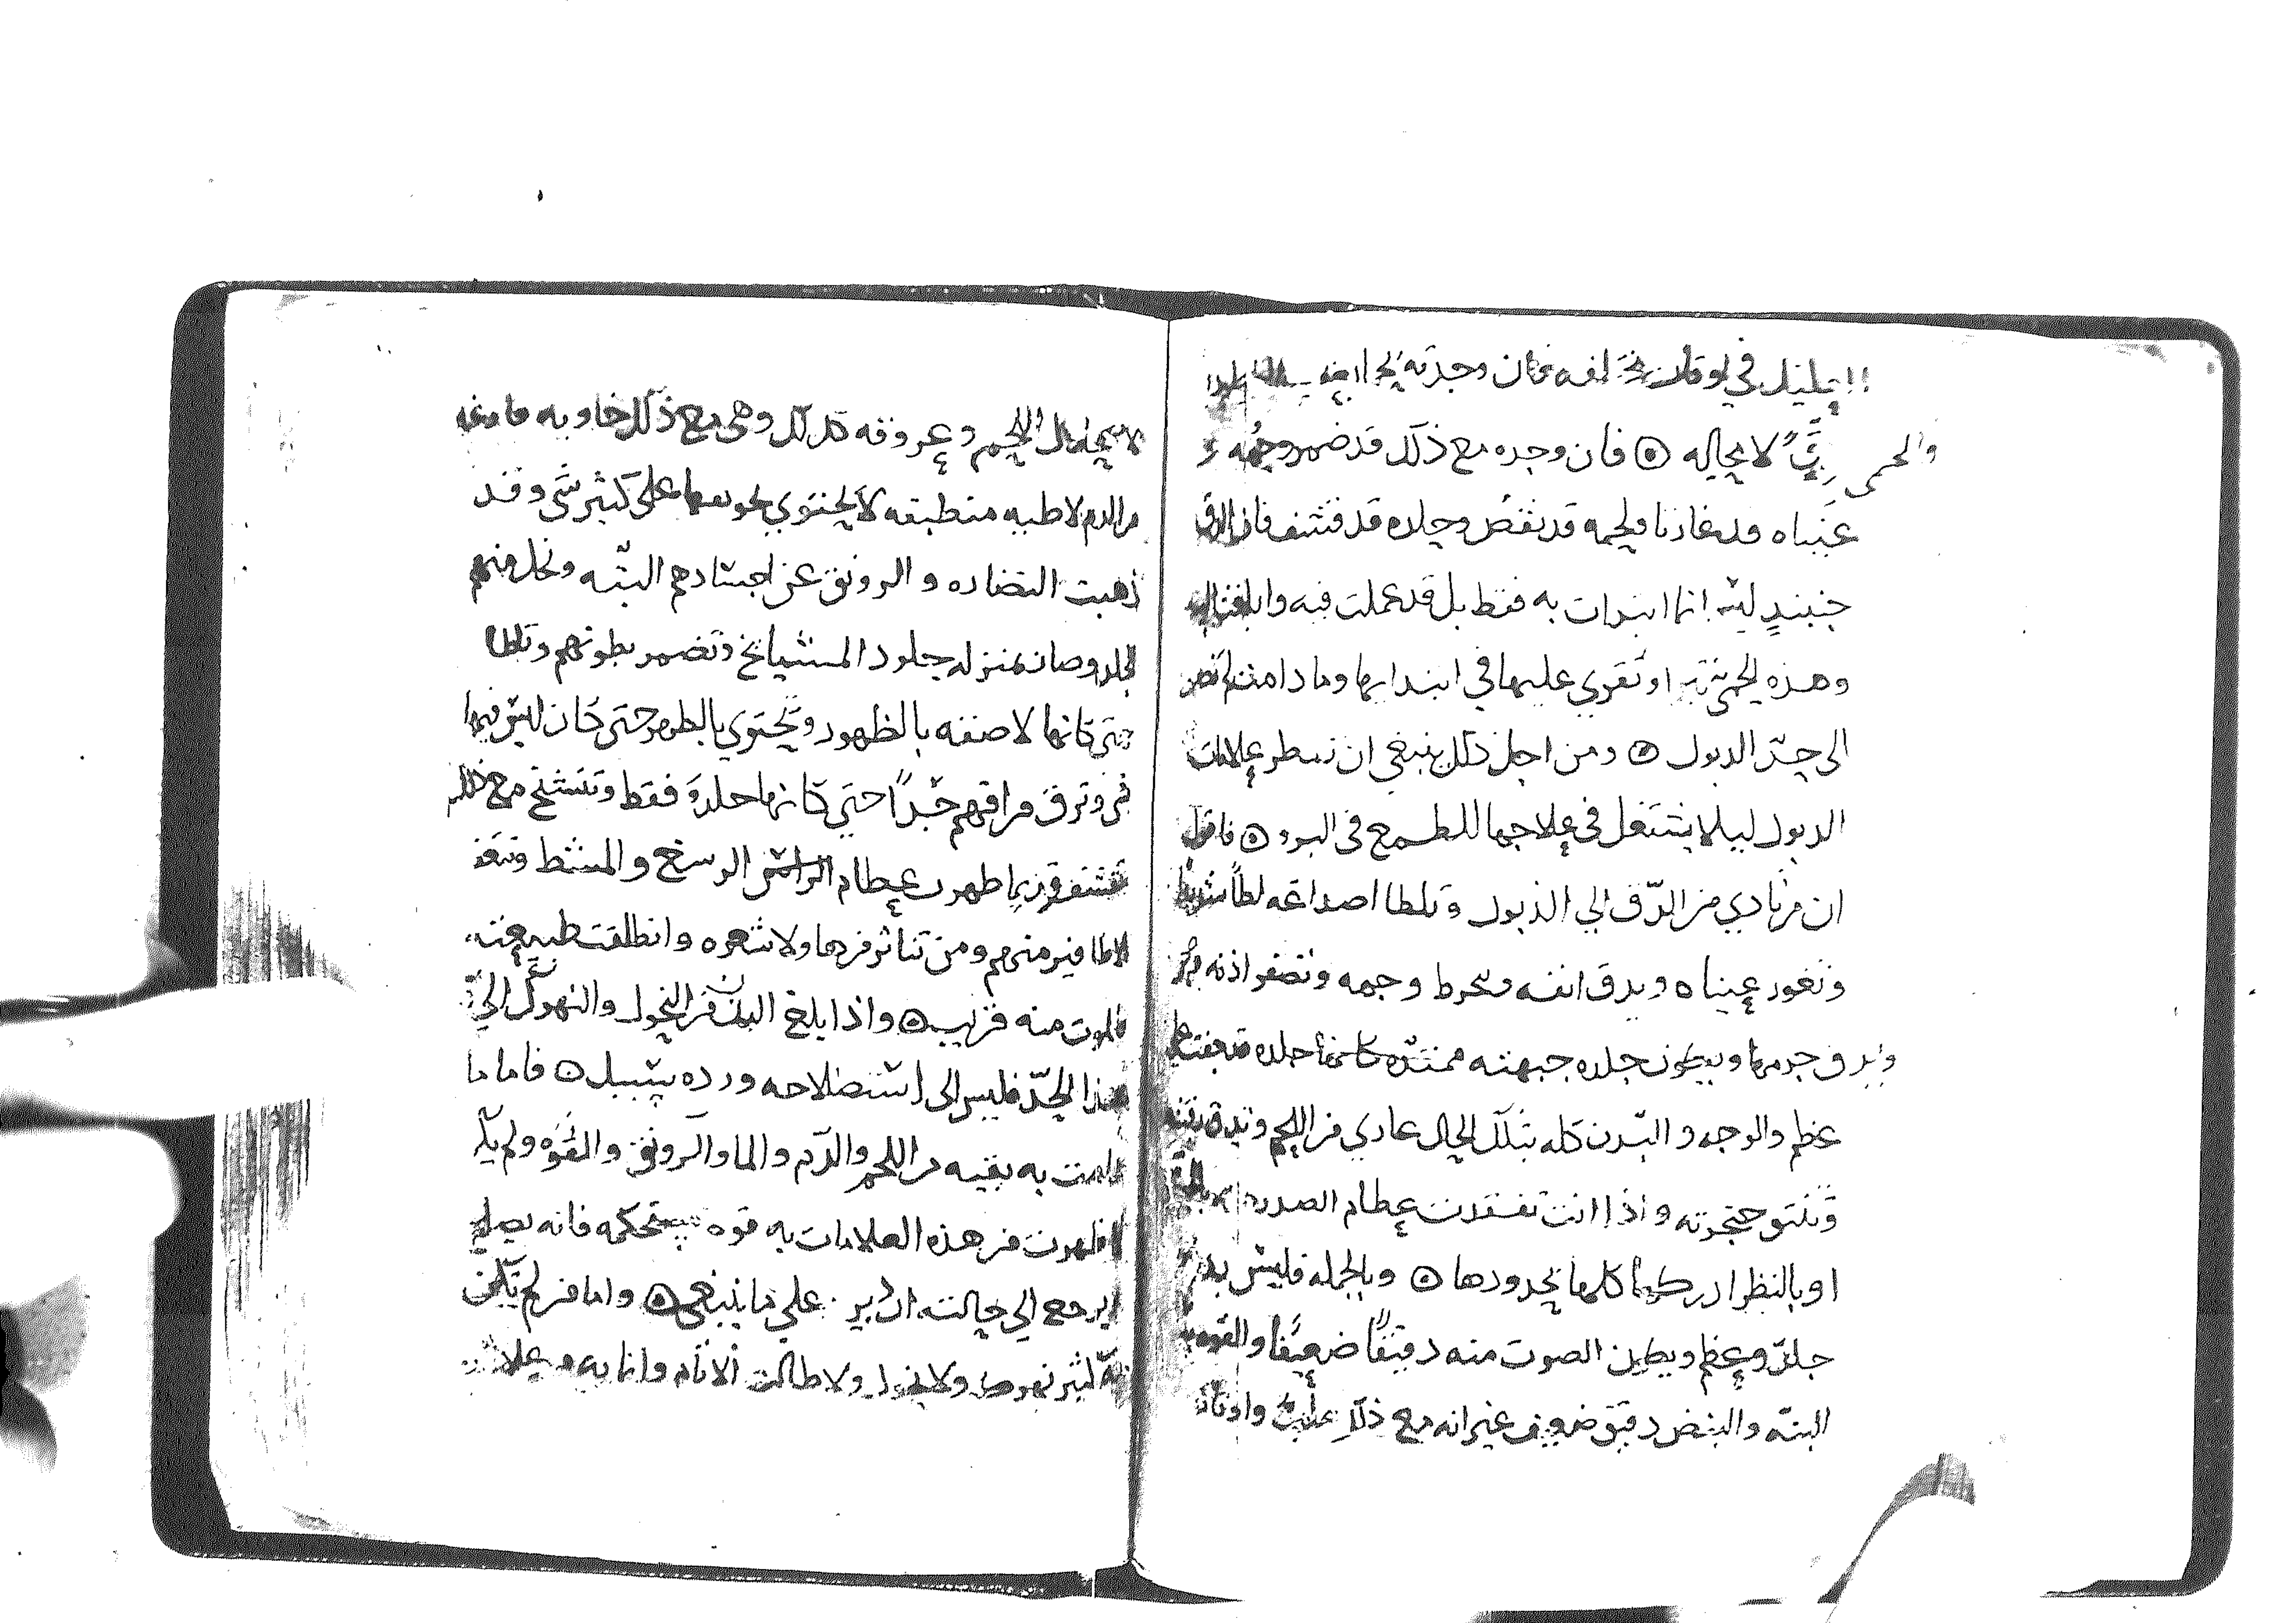 العليل في اوقات مختلفه فان وجدته
والحمى دق لا محاله ۞ فان وجده مع ذلك قد ضمر وجهه و
عيناه قد غارتا ولحمه قد نقص وجلده قد قشف فان الدق
حينيذٍ ليس انما ابتدات به فقط بل قد عملت فيه وابلغت اليه
وهذه الحمى تبرا وتقوي عليها في ابتدايها وما دامت لم تصر
الى حدّ الدبول ۞ ومن اجل ذلك ينبغي ان تسطر علامات
الدبول ليلا يشتغل في علاجها للطمع في البرو ۞ فاقول
ان من تادي من الدّق الي الذبول وتلطا اصداغه لطاً شديدا
وتغور عيناه ويدق انفه وينخرط وجهه وتصفر اذنه
ويدق جرمها ويكون جلده جبهته ممتده كانها جلده قد جففت على
عظم والوجه والبدن كله بتلك الحال عاري من اللحم وتدق رقبته
وتنتو حنجرته واذا انت تفقدت عظام الصدر
او بالنظر ادركتها كلها بحدودها ۞ وبالجمله فليس بد
جلد وعظم ويكون الصوت منه دقيقًا ضعيفًا والقوه
البته والنبض دقيق ضعيف غير انه مع ذلك صلب واوتاد
لاضمحلال اللحم وعروقه كذلك وهى مع ذلك خاويه فارغه
من الدم لاطيه منطبقه لا يحتوي تجويفها على كثير شى وقد
ذهبت النضاره والرونق عن اجسادهم البتّه ونحل منهم
الجلد وصار بمنزله جلود المشايخ وتضمر بطونهم وتلطا
حتى كانها لاصقه بالظهور وتحتوي بالظهر حتى كان ليس فيها
شى وترق مراقهم جدًا حتي كانها جلدة فقط وتتشنج مع ذلك
تقشف وربما ظهرت عظام الراس الرسغ والمشط وتتعقف
الاظافير منهم ومن تناثر منها ولا شعره وانطلقت طبيعته
فالموت منه قريب ۞ واذا بلغ البدن من النحول والنهوك الي
هذا الحدّ فليس الى استصلاحه ورده سبيل ۞ فاما ما
دامت به بقيه من اللحم والدّم والما والرونق والقوه ولم يك
ظهرت من هذه العلامات به قوه مستحكمه فانه يصلح
ويرجع الي حالته ان دبر علي ما ينبغي ۞ واما من لم تكن
به كثير نهوك ولا نحول ولا طالت الايام وانما به علامات